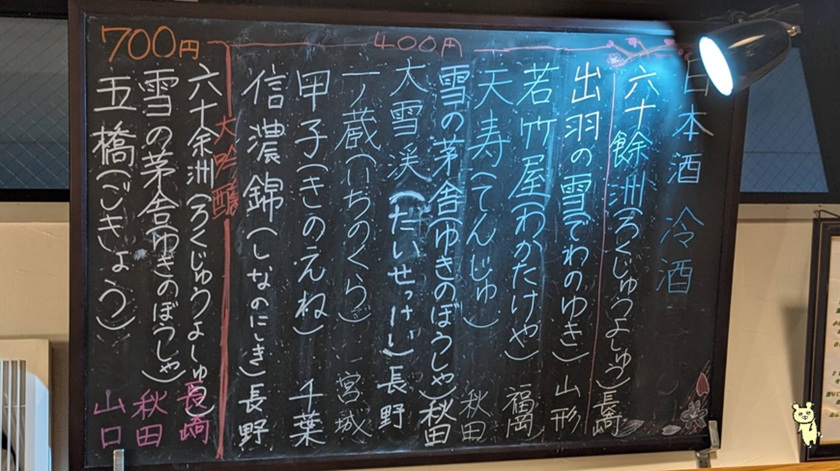 日本酒 冷酒
400円
六十餘洲(ろくじゅうよしゅう)長崎
出羽の雪(でわのゆき)山形
若竹屋(わかたけや)福岡
天寿(てんじゅ)秋田
雪の茅舎(ゆきのぼうしゃ)秋田
大雪渓(たいせっけい)長野
一ノ蔵(いちのくら)宮城
甲子(きのえね)千葉
信濃錦(しなのにしき)長野
700円
大吟醸
六十余洲(ろくじゅうよしゅう)長崎
雪の茅舎(ゆきのぼうしゃ)秋田
五橋(ごきょう)山口